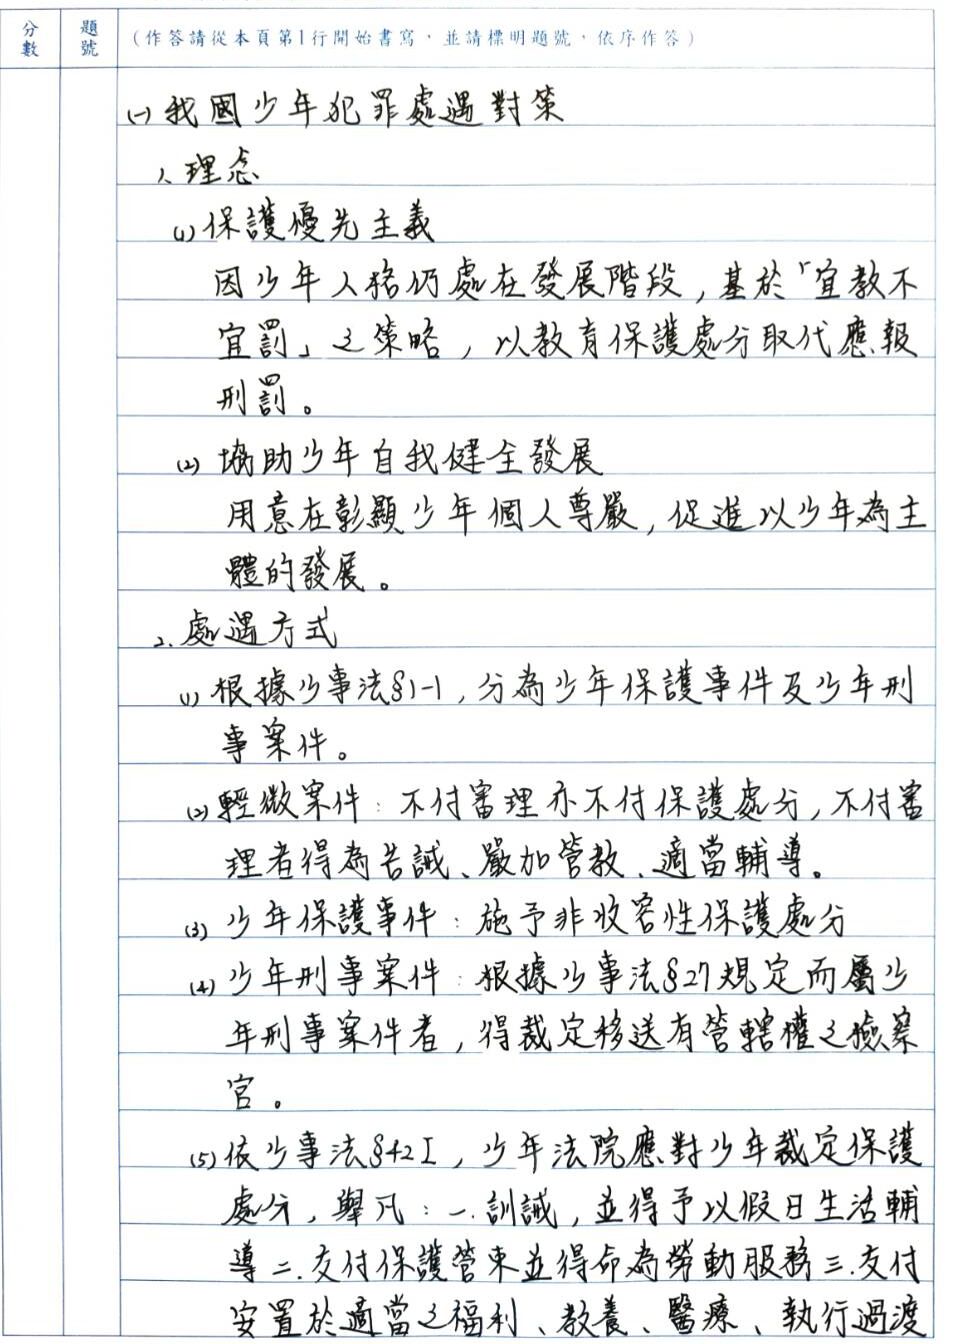 分數
題號
(作答請從本頁第1行開始書寫，並請標明題號，依序作答)
(一) 我國少年犯罪處遇對策
1、理念
(1) 保護優先主義
因少年人格仍處在發展階段，基於「宜教不
宜罰」之策略，以教育保護處分取代應報
刑罰。
(2) 協助少年自我健全發展
用意在彰顯少年個人尊嚴，促進以少年為主
體的發展。
2、處遇方式
(1) 根據少事法§1-1，分為少年保護事件及少年刑
事案件。
(2) 輕微案件：不付審理亦不付保護處分，不付審
理者得為告誡、嚴加管教、適當輔導。
(3) 少年保護事件：施予非收容性保護處分
(4) 少年刑事案件：根據少事法§27規定而屬少
年刑事案件者，得裁定移送有管轄權之檢察
官。
(5) 依少事法§42I，少年法院應對少年裁定保護
處分，舉凡：一.訓誡，並得予以假日生活輔
導二.交付保護管束並得命為勞動服務三.交付
安置於適當之福利、教養、醫療、執行過渡